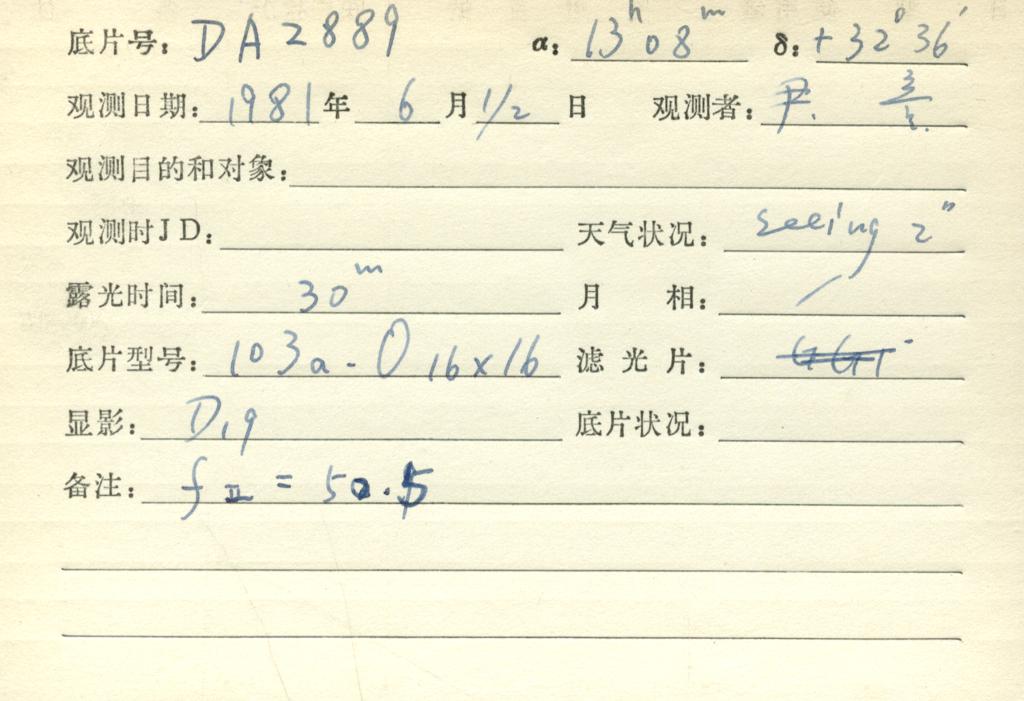 底片号: DA2889 α: 13ʰ08ᵐ δ: +32°36′
观测日期: 1981年 6月 1/2日 观测者:
观测目的和对象:
观测时JD: 天气状况: seeing 2"
露光时间: 30ᵐ 月 相: /
底片型号: 103a-O 16×16 滤光片:
显影: D19
底片状况:
备注: fⅡ = 50.5